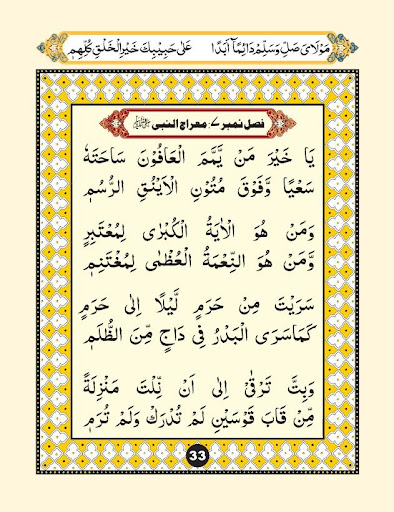 مَوْلَاىَ صَلِّ وَسَلِّمْ دَائِمًا اَبَدًا عَلٰى حَبِيْبِكَ خَيْرِ الْخَلْقِ كُلِّهِمٖ
فصل نمبر 7: معراج النبی ﷺ
يَا خَيْرَ مَنْ يَّمَّمَ الْعَافُوْنَ سَاحَتَهٗ
سَعْيًا وَّفَوْقَ مُتُوْنِ الْاَيْنُقِ الرُّسُمٖ
وَمَنْ هُوَ الْاٰيَةُ الْكُبْرٰى لِمُعْتَبِرٍ
وَّمَنْ هُوَ النِّعْمَةُ الْعُظْمٰى لِمُغْتَنِمٖ
سَرَيْتَ مِنْ حَرَمٍ لَّيْلًا اِلٰى حَرَمٍ
كَمَا سَرَى الْبَدْرُ فِىْ دَاجٍ مِّنَ الظُّلَمٖ
وَبِتَّ تَرْقٰى اِلٰى اَنْ نِّلْتَ مَنْزِلَةً
مِّنْ قَابَ قَوْسَيْنِ لَمْ تُدْرَكْ وَلَمْ تُرَمٖ
33